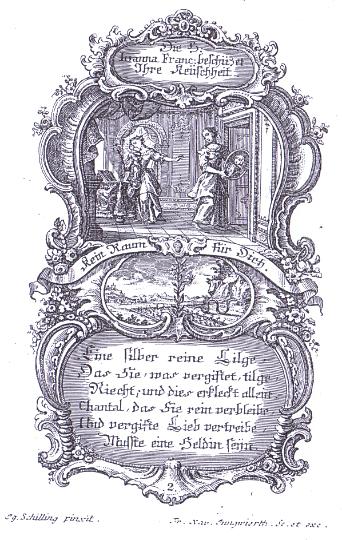 Die H.
Ioanna Franc: beschüzet
Ihre Keüschheit
Kein Raum für Dich
Eine silber reine Lilge
Das Sie, was vergiftet, tilge
Riecht; und dies erkleckt allein
Chantal, das Sie rein verbleibe
Und vergifte Lieb vertreibe
Musste eine Heldin seÿn.
2.
Gg. Schilling pinxit.
Fr. Xav. Jungwierth. Sc. et exc.